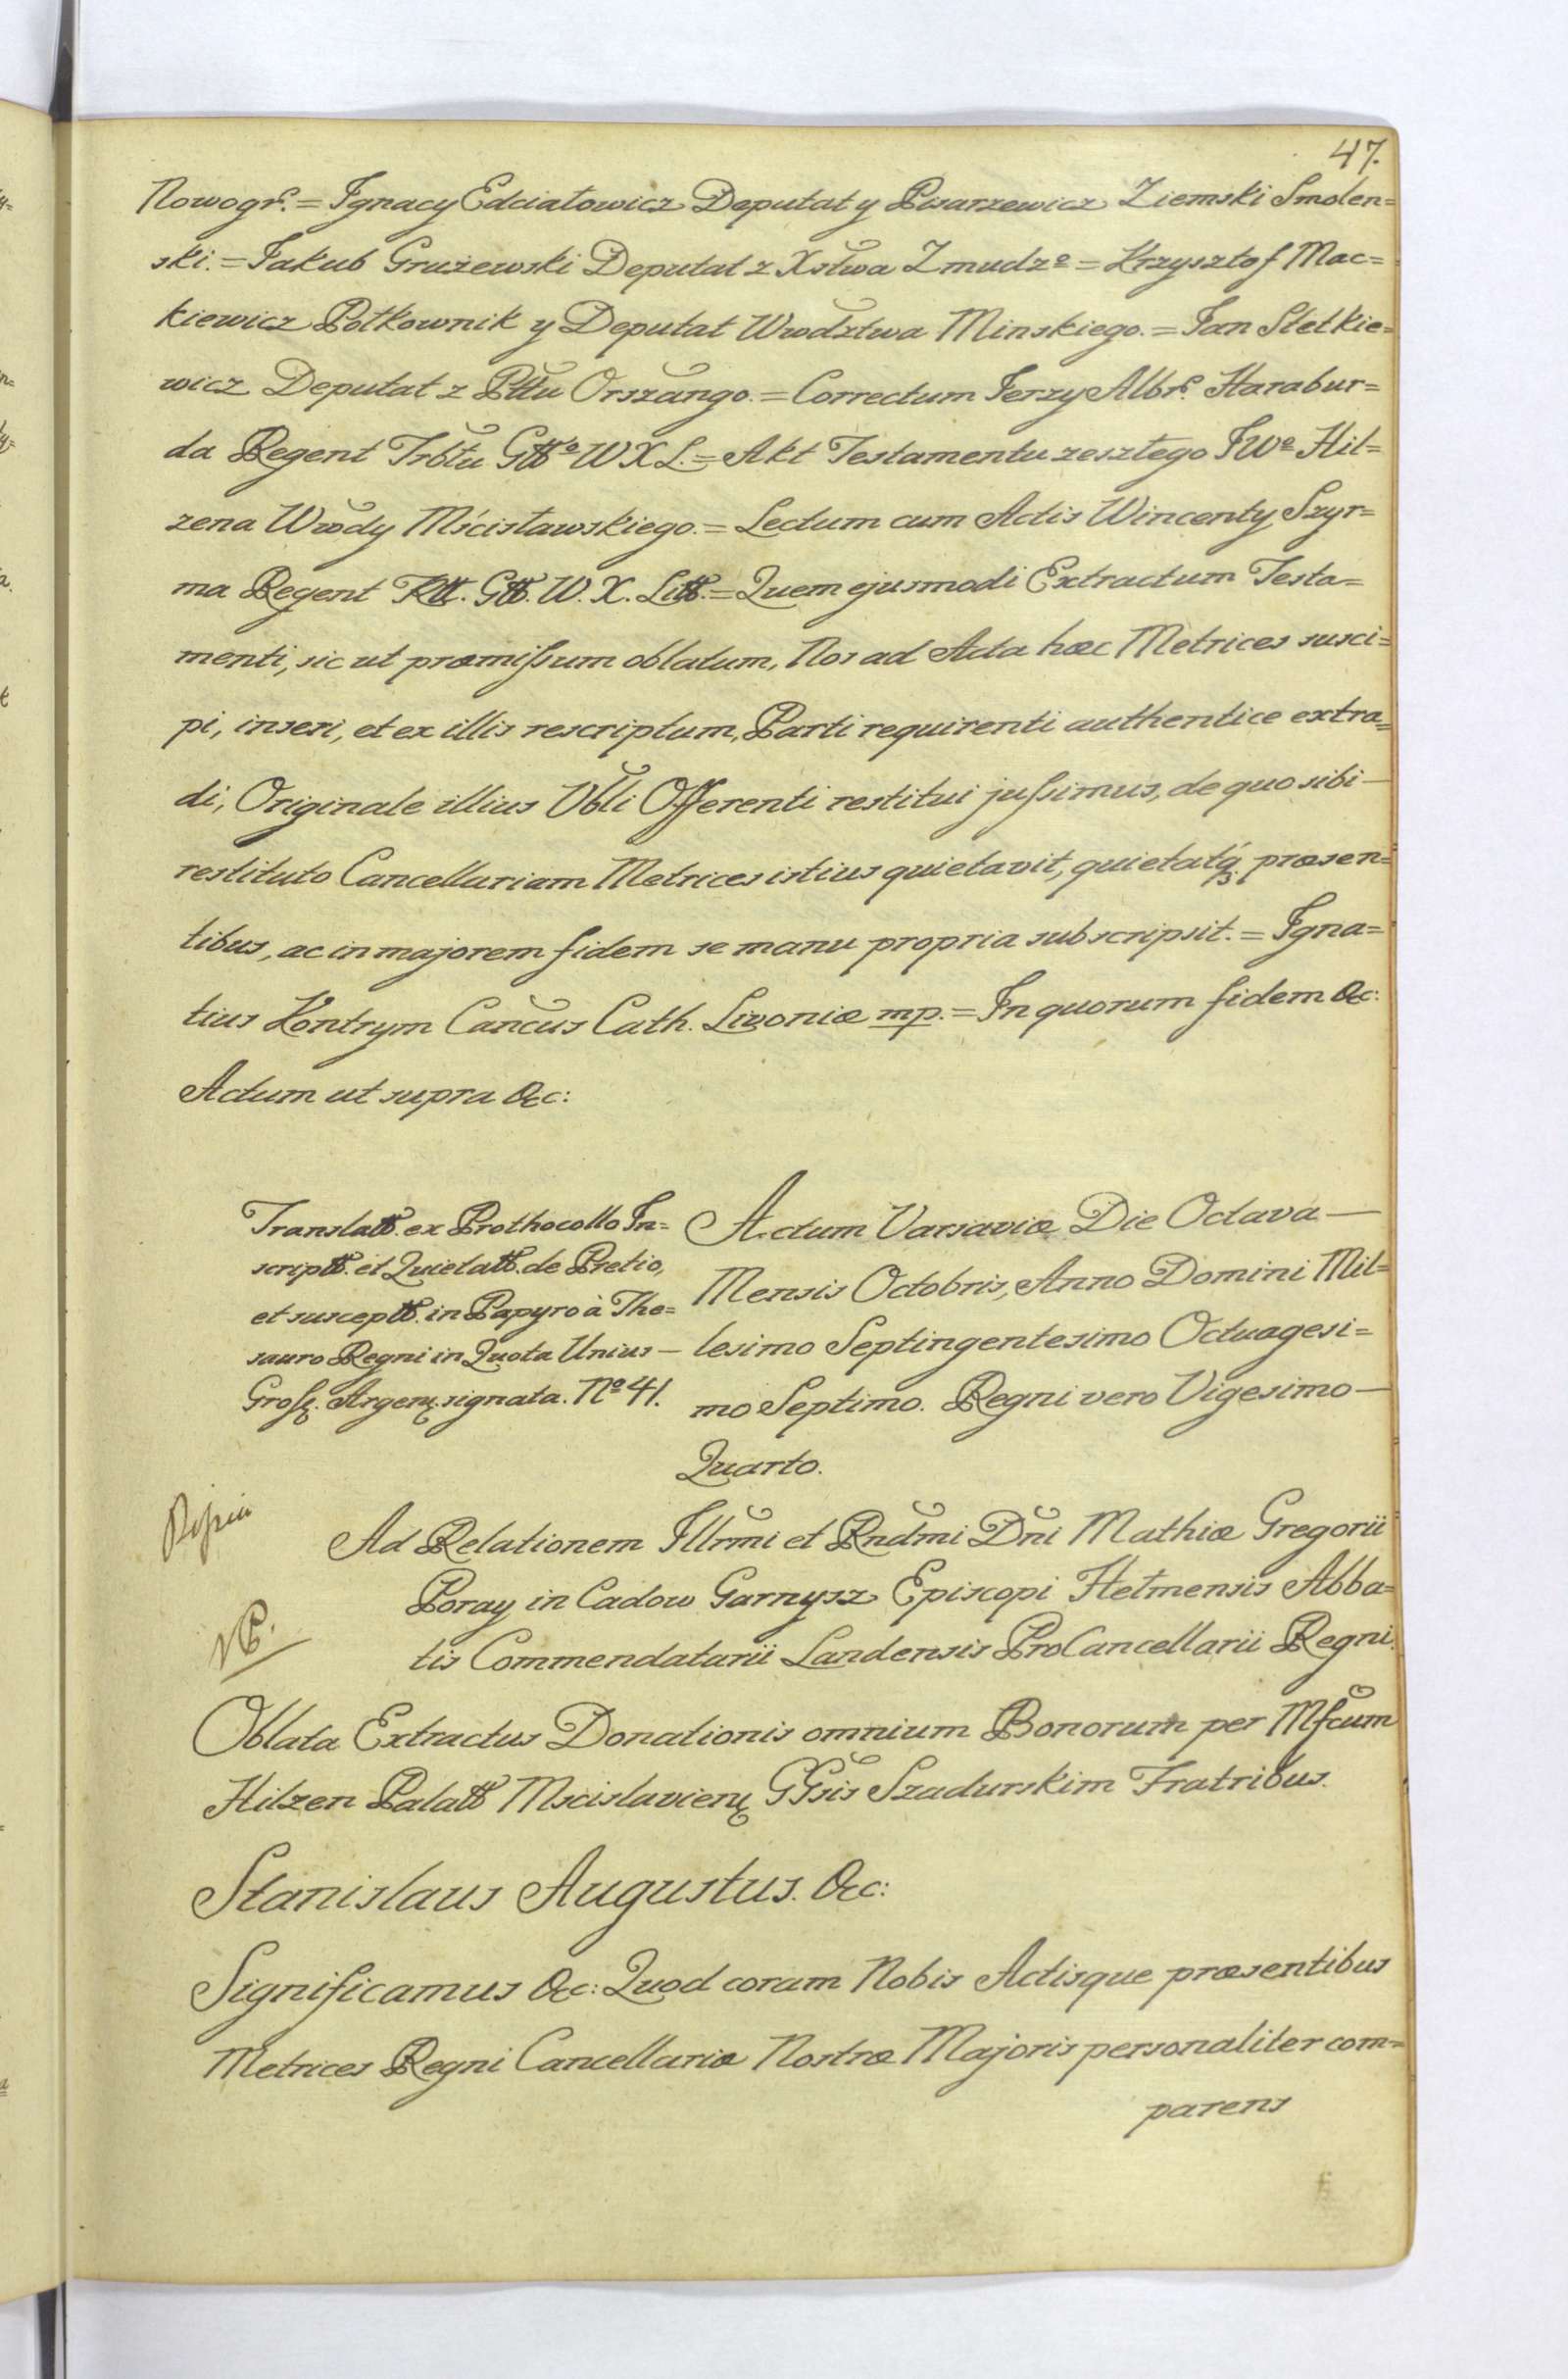 47.
Nowogr. = Ignacy Edciatowicz Deputat y Pisarzewicz Ziemski Smolen=
ski. = Jakub Grużewski Deputat z Xstwa Zmudzº = Krzysztof Mac=
kiewicz Połkownik y Deputat Wwodztwa Minskiego. = Jan Stetkie=
wicz Deputat z Pttu Orszango. = Correctum Jerzy Albr. Harabur=
da Regent Trbtu Gttº W X L. = Akt Testamentu zesztego JWº Hil=
zena Wwody Mścisławskiego. = Lectum cum Actis Wincenty Szyr=
ma Regent Gtt. W. X. Litt. = Quem ejusmodi Extractum Testa=
menti, sic ut præmissum oblatum, Nos ad Acta hæc Metrices susci=
pi, inseri, et ex illis rescriptum, Parti requirenti authentice extra=
di, Originale illius Vbli Offerenti restitui jussimus, de quo sibi —
restituto Cancellariam Metrices istius quietavit, quietatq præsen=
tibus, ac in majorem fidem se manu propria subscripsit. = Igna=
tius Kontrym Cancus Cath. Livoniæ mp. = In quorum fidem &c:
Actum ut supra &c:
Translatt. ex Prothocollo In=
scriptt. et Quietatt. de Pretio,
et susceptt. in Papyro à The=
sauro Regni in Quota Unius —
Gross. Argen. signata. Nº 41.
Actum Varsaviæ Die Octava —
Mensis Octobris, Anno Domini Mil=
lesimo Septingentesimo Octuagesi=
mo Septimo. Regni vero Vigesimo —
Quarto.
Ad Relationem Illrmi et Rndmi Dni Mathiæ Gregorii
Poray in Cadow Garnysz Episcopi Hełmensis Abba=
tis Commendatarii Landensis ProCancellarii Regni.
Oblata Extractus Donationis omnium Bonorum per Mfcum
Hilzen Palatt Mscislavien GGsis Szadurskim Fratribus.
Stanislaus Augustus. &c:
Significamus &c: Quod coram Nobis Actisque præsentibus
Metrices Regni Cancellariæ Nostræ Majoris personaliter com=
parens